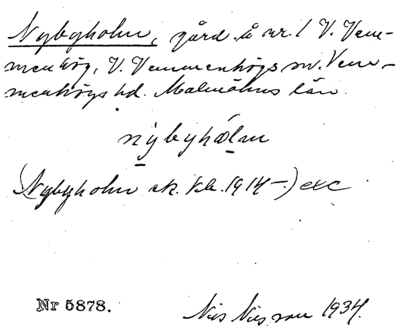 Nybyholm, gård å nr. 1 V. Vem-
menhög, V. Vemmenhögs sn. Vem-
menhögs hd. Malmöhus län.
nybyhɷlm
(Nybyholm ek. kb. 1914–) exc
Nr 5878.
Nils Nilsson 1934.